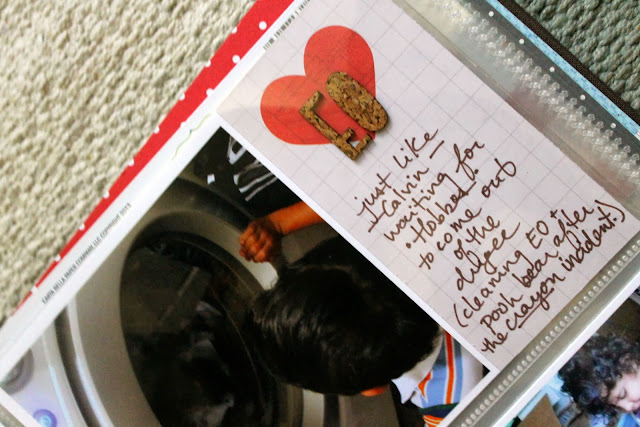 EO
just like
Calvin —
waiting for
• Hobbes
to come out
of the
dryer
(cleaning EO +
Pooh bear after
the crayon incident.)
CARTA BELLA PAPER COMPANY LLC COPYRIGHT 2013